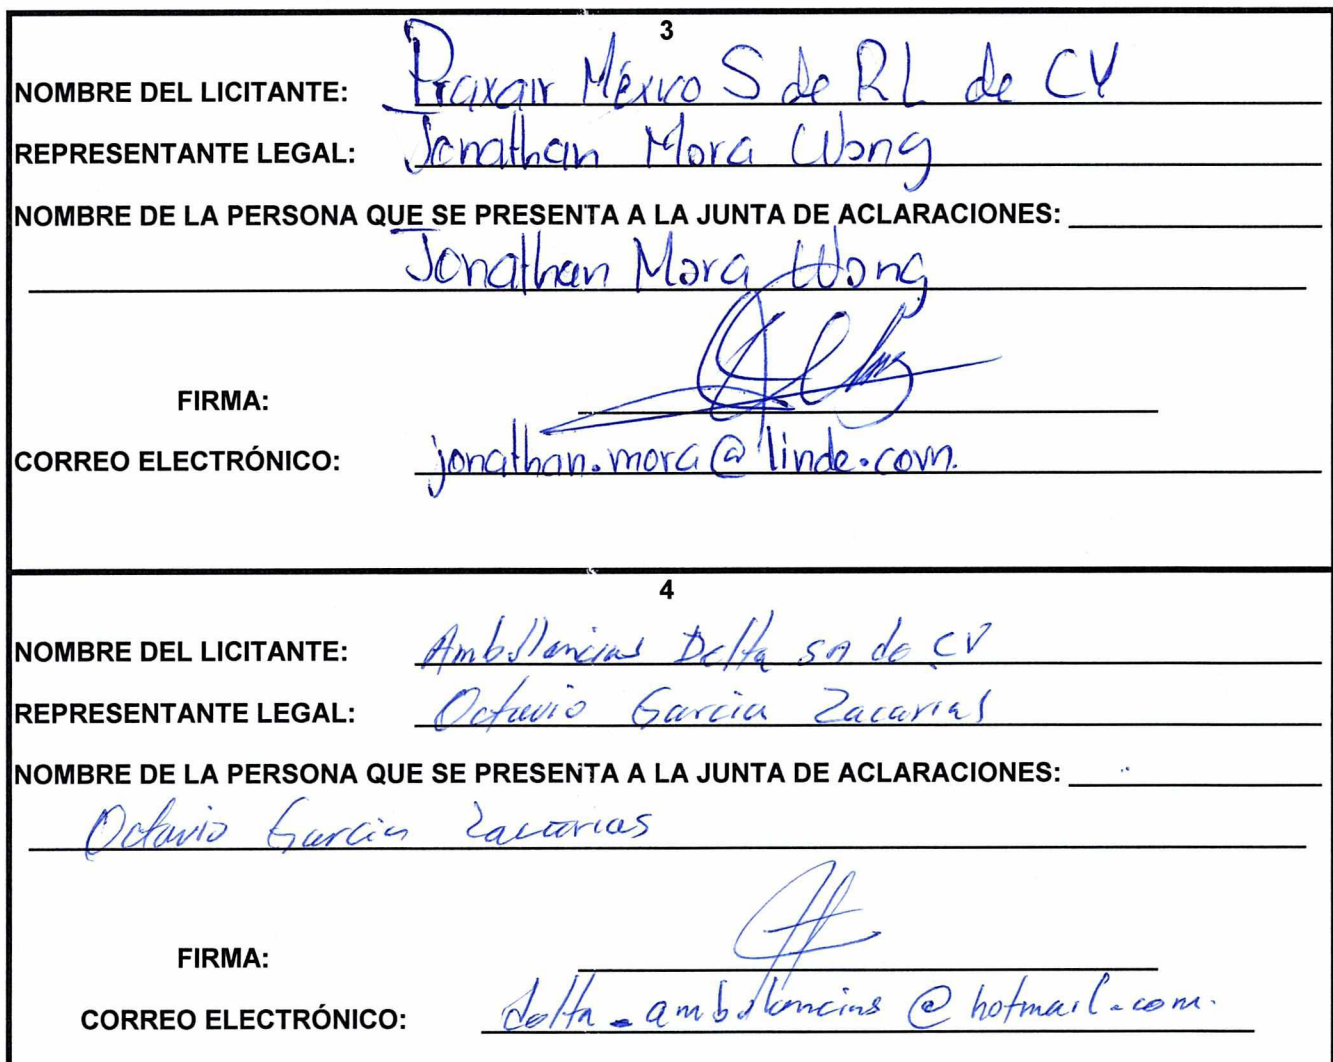 3
NOMBRE DEL LICITANTE: Praxair México S de RL de CV
REPRESENTANTE LEGAL: Jonathan Mora Wong
NOMBRE DE LA PERSONA QUE SE PRESENTA A LA JUNTA DE ACLARACIONES:
Jonathan Mora Wong
FIRMA:
CORREO ELECTRÓNICO: jonathan.mora@linde.com.
4
NOMBRE DEL LICITANTE: Ambulancias Delta SA de CV
REPRESENTANTE LEGAL: Octavio Garcia Zacarias
NOMBRE DE LA PERSONA QUE SE PRESENTA A LA JUNTA DE ACLARACIONES:
Octavio Garcia Zacarias
FIRMA:
CORREO ELECTRÓNICO: delta_ambulancias@hotmail.com.